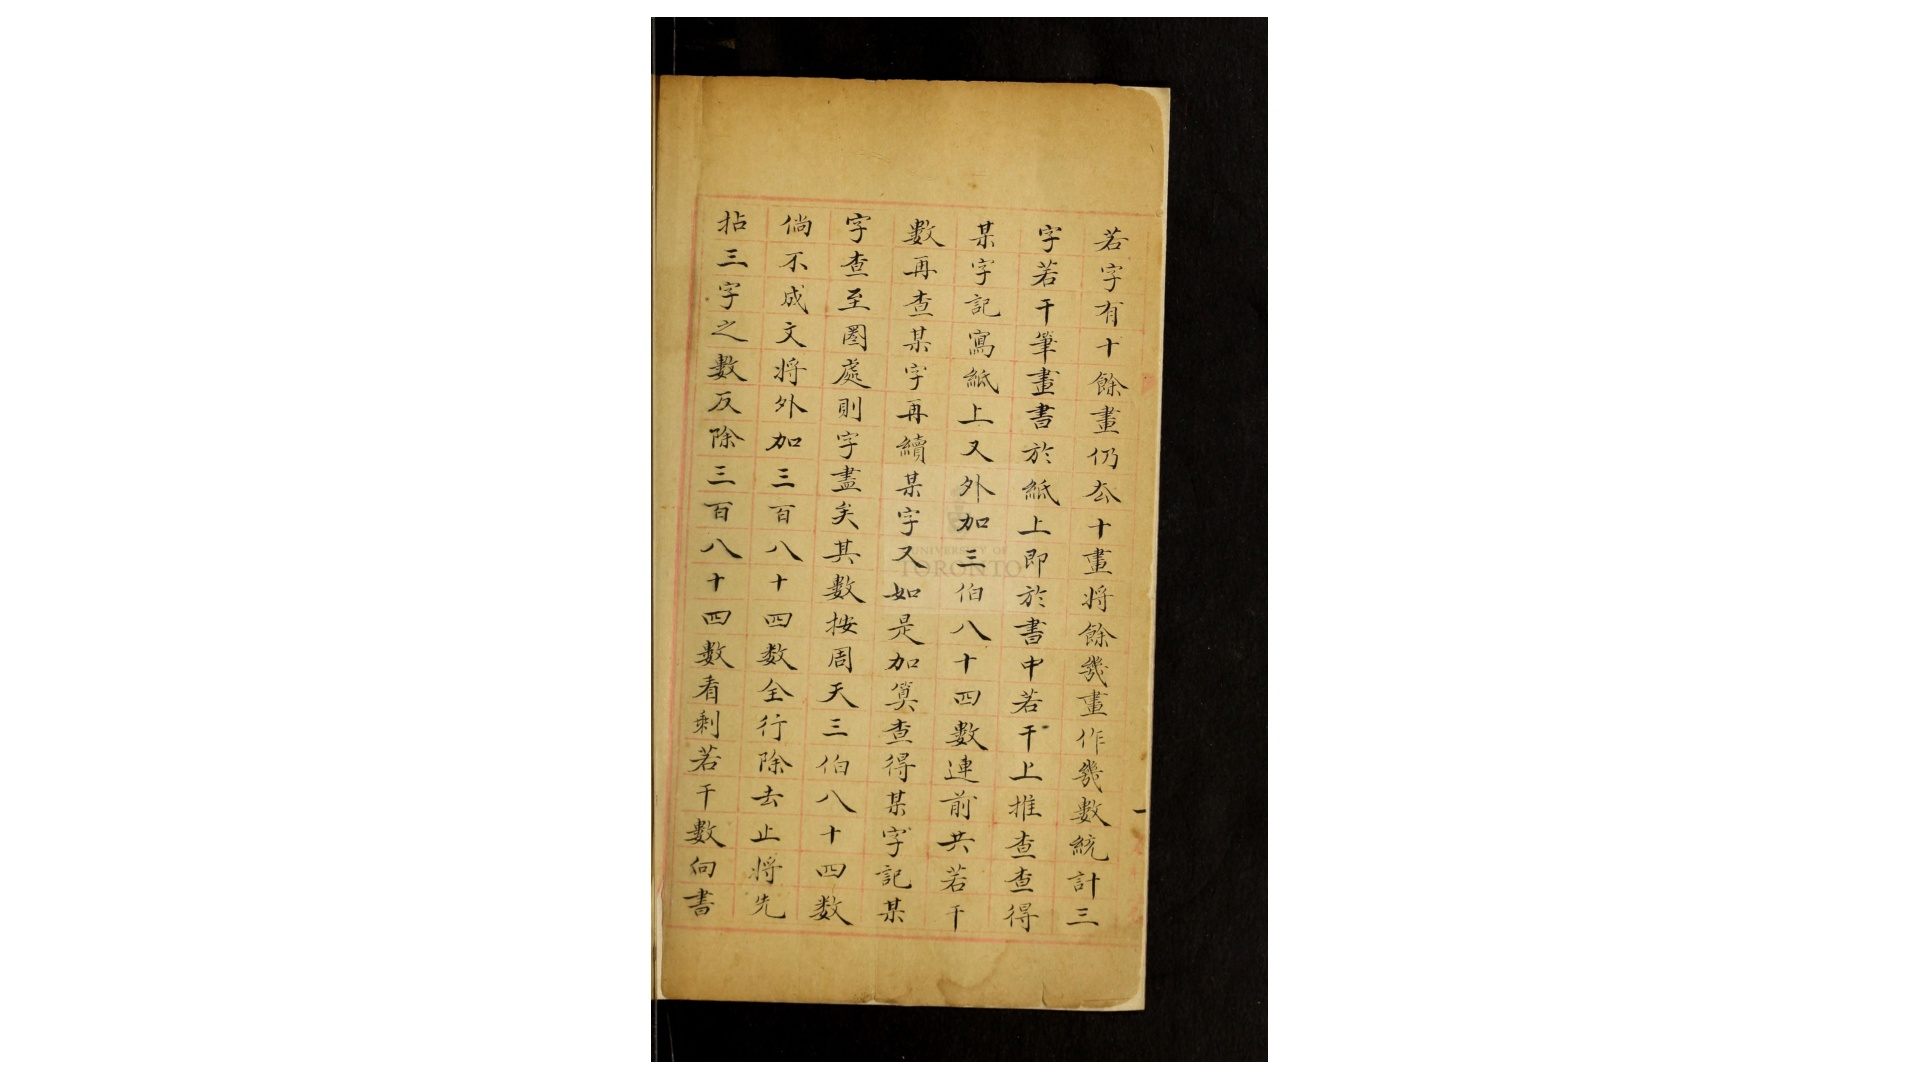 若字有十餘畫仍夲十畫將餘幾畫作幾數統計三
字若干筆畫書於紙上即於書中若干上推查查得
某字記寫紙上又外加三伯八十四數連前共若干
數再查某字再續某字又如是加算查得某字記某
字查至圈處則字盡矣其數按周天三伯八十四数
倘不成文將外加三百八十四数全行除去止將先
拈三字之數反除三百八十四數看剩若干數向書
UNIVERSITY OF
TORONTO